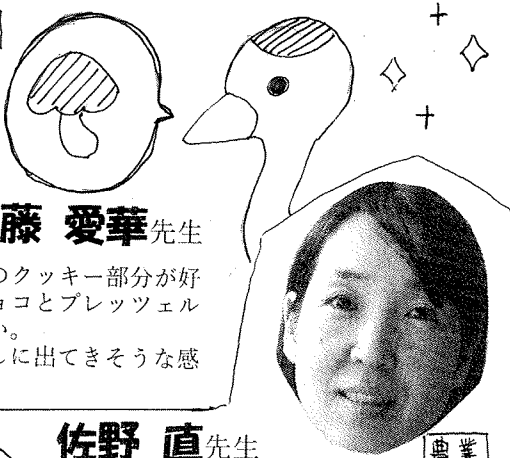 藤 愛華先生
のクッキー部分が好
ョコとプレッツェル
い。
しに出てきそうな感
佐野 直先生
農業